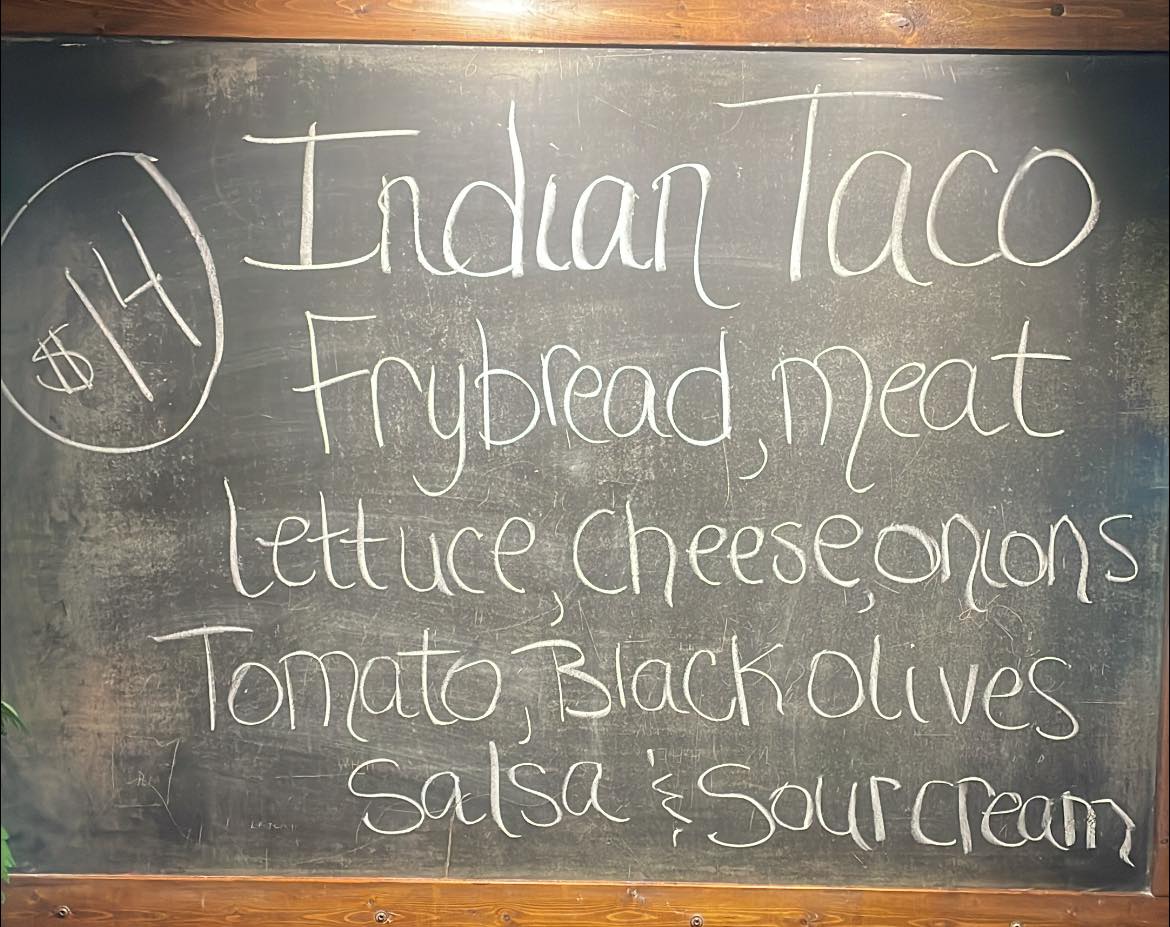 Indian Taco
$14
Frybread, meat
lettuce, cheese, onions
Tomato, Black olives
Salsa & Sour cream